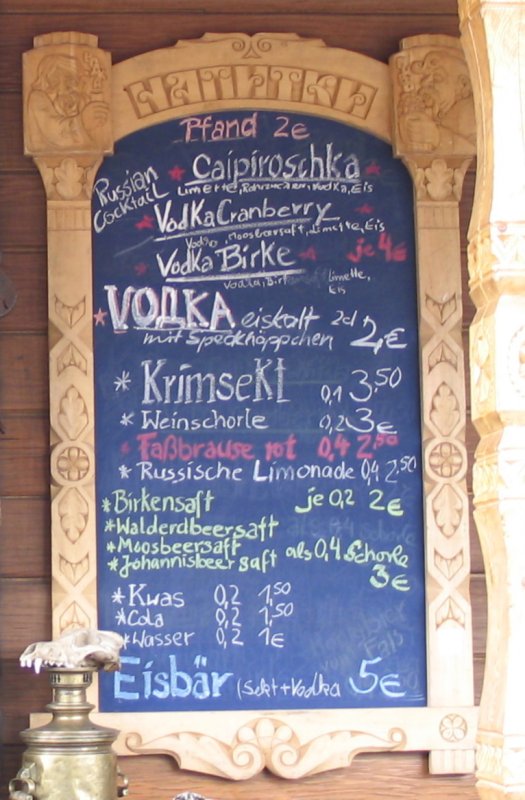 НАПИТКИ
Pfand 2€
Russian Cocktail
Caipiroschka
Limette, Rohrzucker, Vodka, Eis
Vodka Cranberry
Vodka, Moosbeersaft, Limette, Eis
je 4€
Vodka Birke
Vodka, Birkensaft, Limette, Eis
VODKA eiskalt 2cl 2,€
mit Speckhäppchen
* KrimseKt 0,1 3,50
* Weinschorle 0,2 3€
* Faßbrause rot 0,4 2,50
* Russische Limonade 0,4 2,50
* Birkensaft je 0,2 2€
* Walderdbeersaft
* Moosbeersaft als 0,4 Schorle
* Johannisbeersaft 3€
* Kwas 0,2 1,50
* Cola 0,2 1,50
* Wasser 0,2 1€
Eisbär (Sekt+Vodka 5€